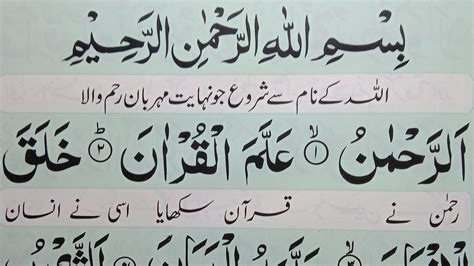 بِسْمِ اللهِ الرَّحْمٰنِ الرَّحِيْمِ
اللہ کے نام سے شروع جو نہایت مہربان رحم والا
اَلرَّحْمٰنُ ۙ﴿۱﴾ عَلَّمَ الْقُرْاٰنَ ؕ﴿۲﴾ خَلَقَ
رحمٰن نے قرآن سکھایا اسی نے انسان